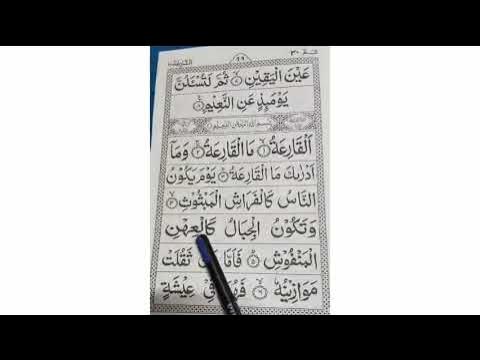 ٩٩
عَيْنَ الْيَقِيْنِ ۙ ثُمَّ لَتُسْـَٔلُنَّ
يَوْمَىِٕذٍ عَنِ النَّعِيْمِ
بِسْمِ اللهِ الرَّحْمٰنِ الرَّحِيْمِ
اَلْقَارِعَةُ ۙ مَا الْقَارِعَةُ ۚ وَمَاۤ
اَدْرٰىكَ مَا الْقَارِعَةُ ؕ يَوْمَ يَكُوْنُ
النَّاسُ كَالْفَرَاشِ الْمَبْثُوْثِ ۙ
وَتَكُوْنُ الْجِبَالُ كَالْعِهْنِ
الْمَنْفُوْشِ ؕ فَاَمَّا ثَقُلَتْ
مَوَازِيْنُهٗ ۙ فِيْ عِيْشَةٍ